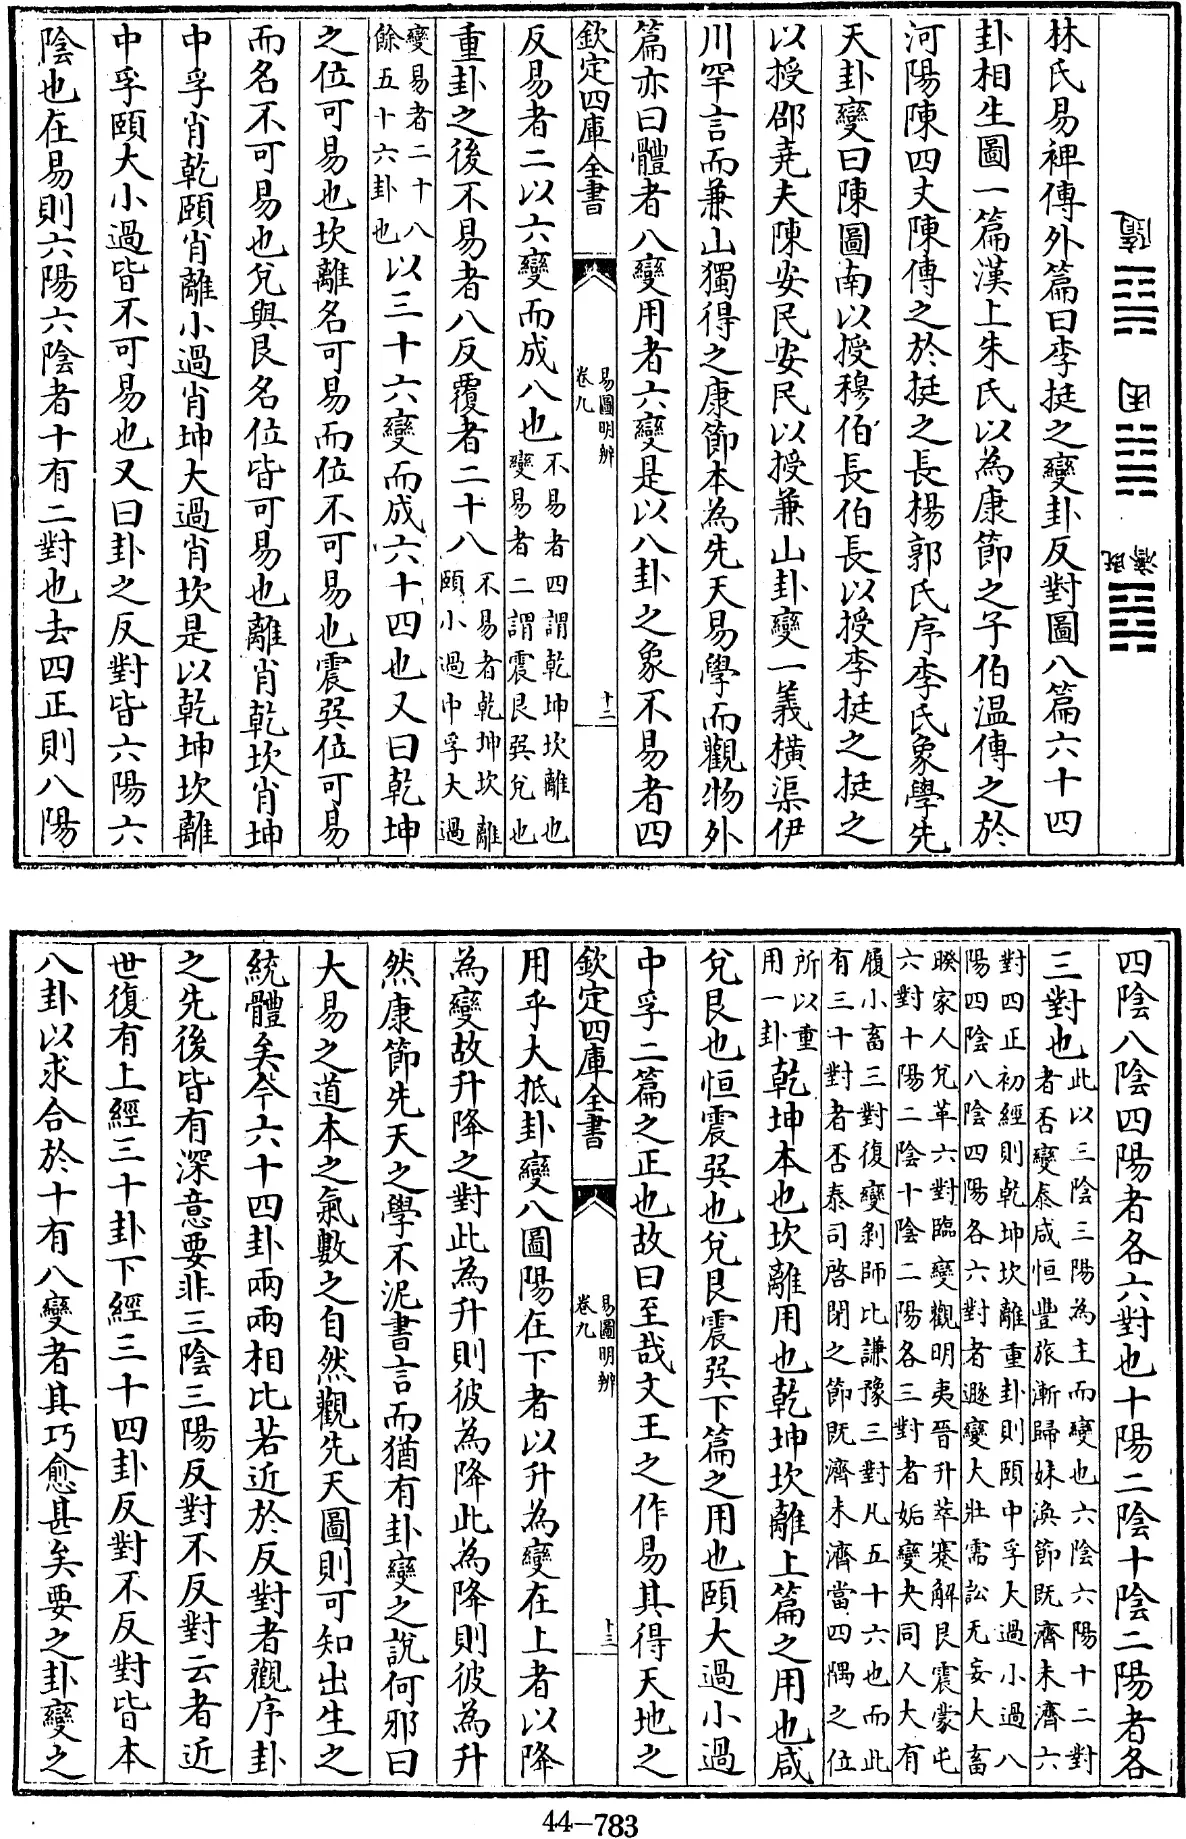 隨 困 既濟
林氏易裨傳外篇曰李挺之變卦反對圖八篇六十四
卦相生圖一篇漢上朱氏以為康節之子伯温傳之於
河陽陳四丈陳傳之於挺之長楊郭氏序李氏象學先
天卦變曰陳圖南以授穆伯長伯長以授李挺之挺之
以授邵堯夫陳安民安民以授兼山卦變一義橫渠伊
川罕言而兼山獨得之康節本為先天易學而觀物外
篇亦曰體者八變用者六變是以八卦之象不易者四
欽定四庫全書 易圖明辨 卷九 十二
反易者二以六變而成八也
不易者四謂乾坤坎離也
變易者二謂震艮巽兌也
重卦之後不易者八反覆者二十八
不易者乾坤坎離
頤小過中孚大過
變易者二十八
餘五十六卦也
以三十六變而成六十四也又曰乾坤
之位可易也坎離名可易而位不可易也震巽位可易
而名不可易也兌與艮名位皆可易也離肖乾坎肖坤
中孚肖乾頤肖離小過肖坤大過肖坎是以乾坤坎離
中孚頤大小過皆不可易也又曰卦之反對皆六陽六
陰也在易則六陽六陰者十有二對也去四正則八陽
四陰八陰四陽者各六對也十陽二陰十陰二陽者各
三對也
此以三陰三陽為主而變也六陰六陽十二對
者否變泰咸恒豐旅漸歸妹渙節既濟未濟六
對四正初經則乾坤坎離重卦則頤中孚大過小過八
陽四陰八陰四陽各六對者遯變大壯需訟无妄大畜
睽家人兌革六對臨變觀明夷晉升萃蹇解艮震蒙屯
六對十陽二陰十陰二陽各三對者姤變夬同人大有
履小畜三對復變剝師比謙豫三對凡五十六也而此
有三十對者否泰司啓閉之節既濟未濟當四隅之位
所以重
用一卦
乾坤本也坎離用也乾坤坎離上篇之用也咸
兌艮也恒震巽也兌艮震巽下篇之用也頤大過小過
中孚二篇之正也故曰至哉文王之作易其得天地之
欽定四庫全書 易圖明辨 卷九 十三
用乎大抵卦變八圖陽在下者以升為變在上者以降
為變故升降之對此為升則彼為降此為降則彼為升
然康節先天之學不泥書言而猶有卦變之說何邪曰
大易之道本之氣數之自然觀先天圖則可知出生之
統體矣今六十四卦兩兩相比若近於反對者觀序卦
之先後皆有深意要非三陰三陽反對不反對云者近
世復有上經三十卦下經三十四卦反對不反對皆本
八卦以求合於十有八變者其巧愈甚矣要之卦變之
44-783